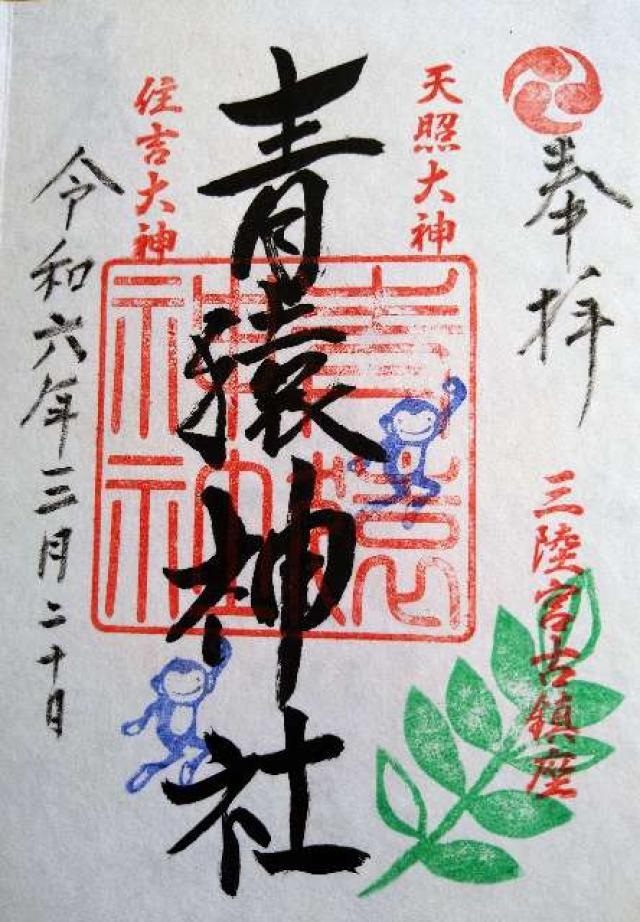 奉拝
三陸宮古鎮座
天照大神
青猿神社
住吉大神
令和六年三月二十日
青猿神社